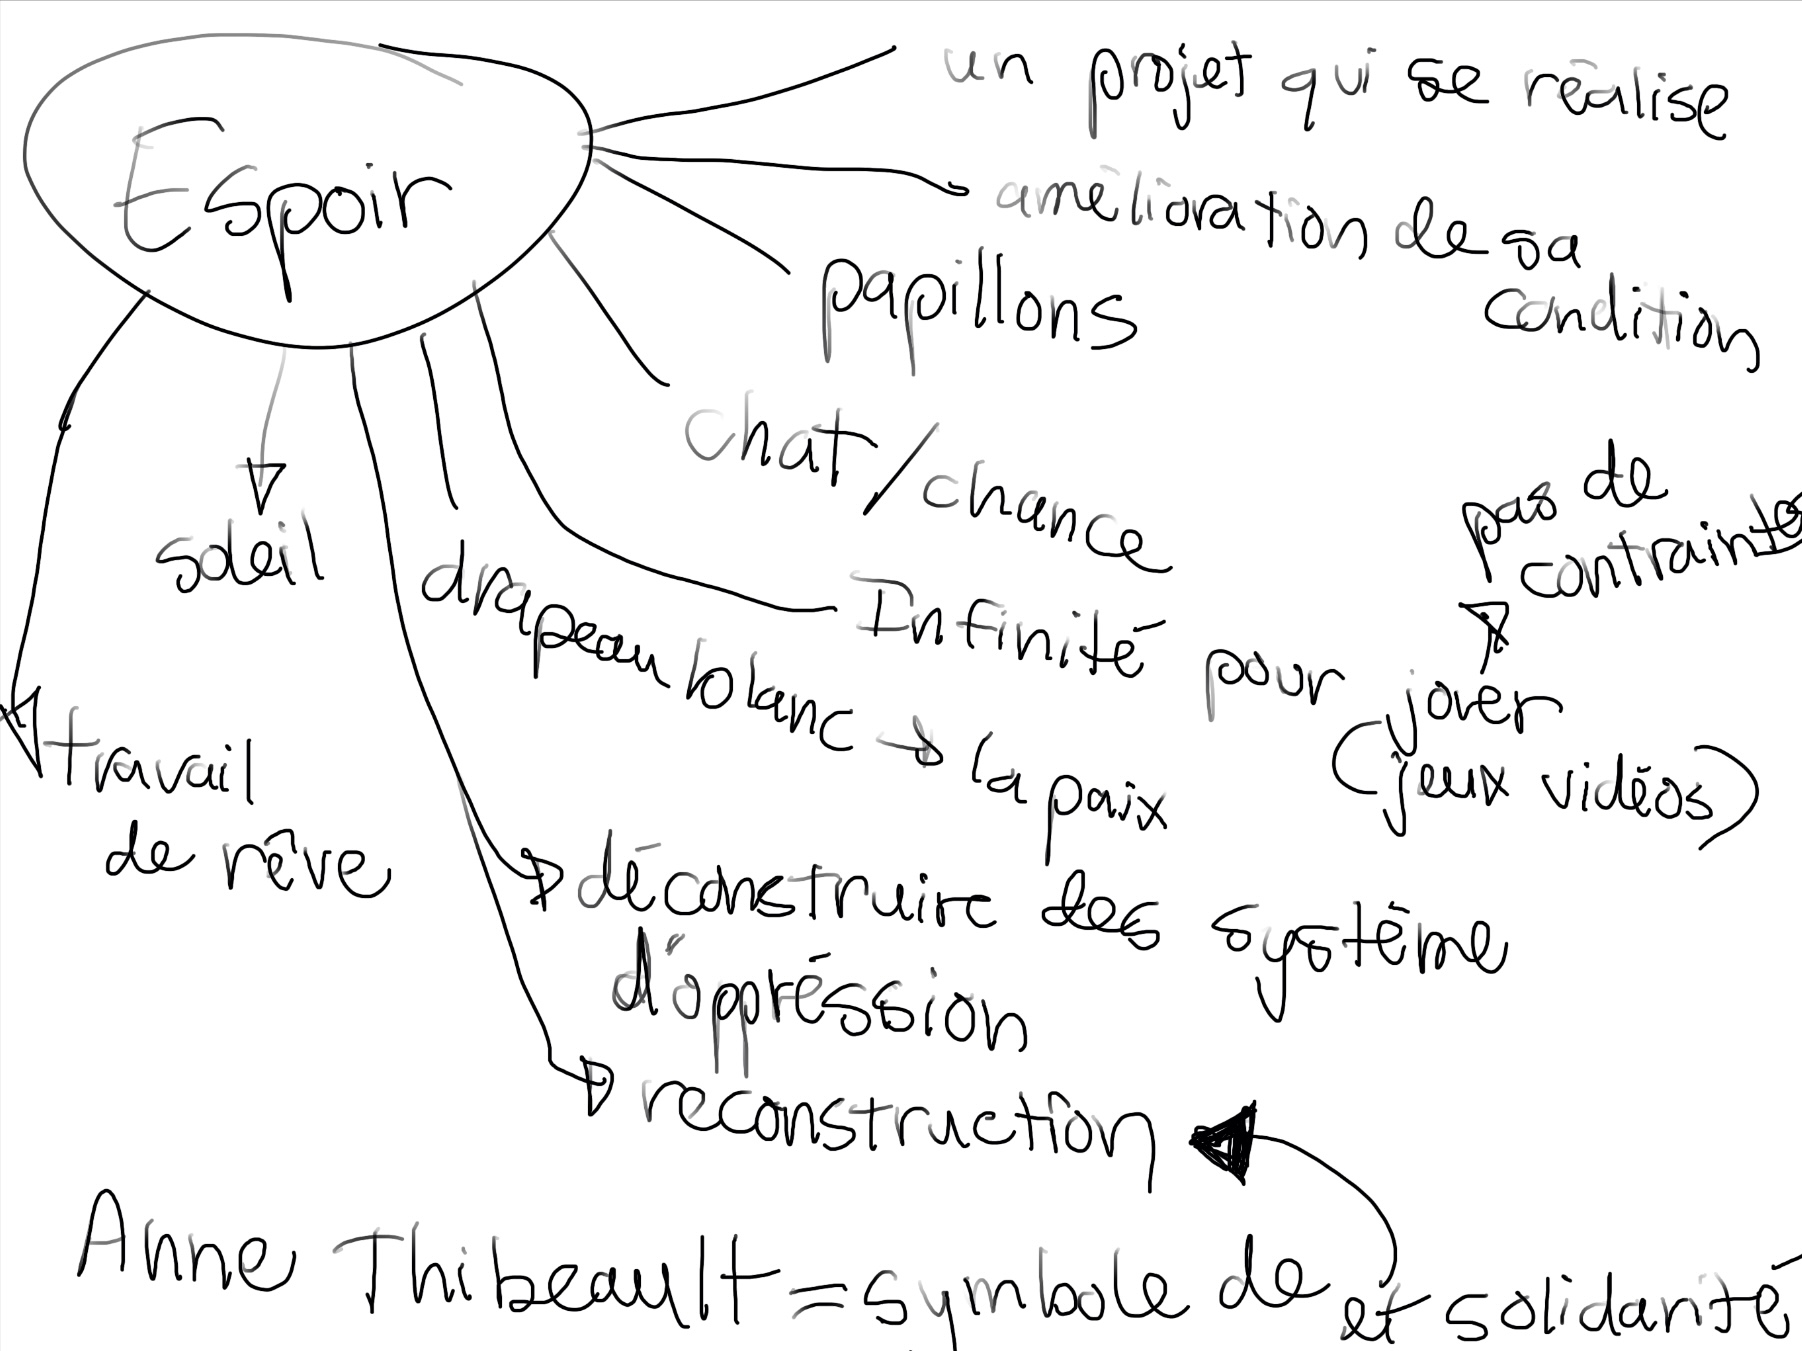 Espoir
un projet qui se réalise
amélioration de sa
condition
papillons
chat/chance
pas de
contraintes
Infinité pour jouer
(jeux vidéos)
soleil
drapeau blanc → la paix
travail
de rêve
déconstruire des système
d'oppréssion
reconstruction
Anne Thibeault = symbole de et solidarité